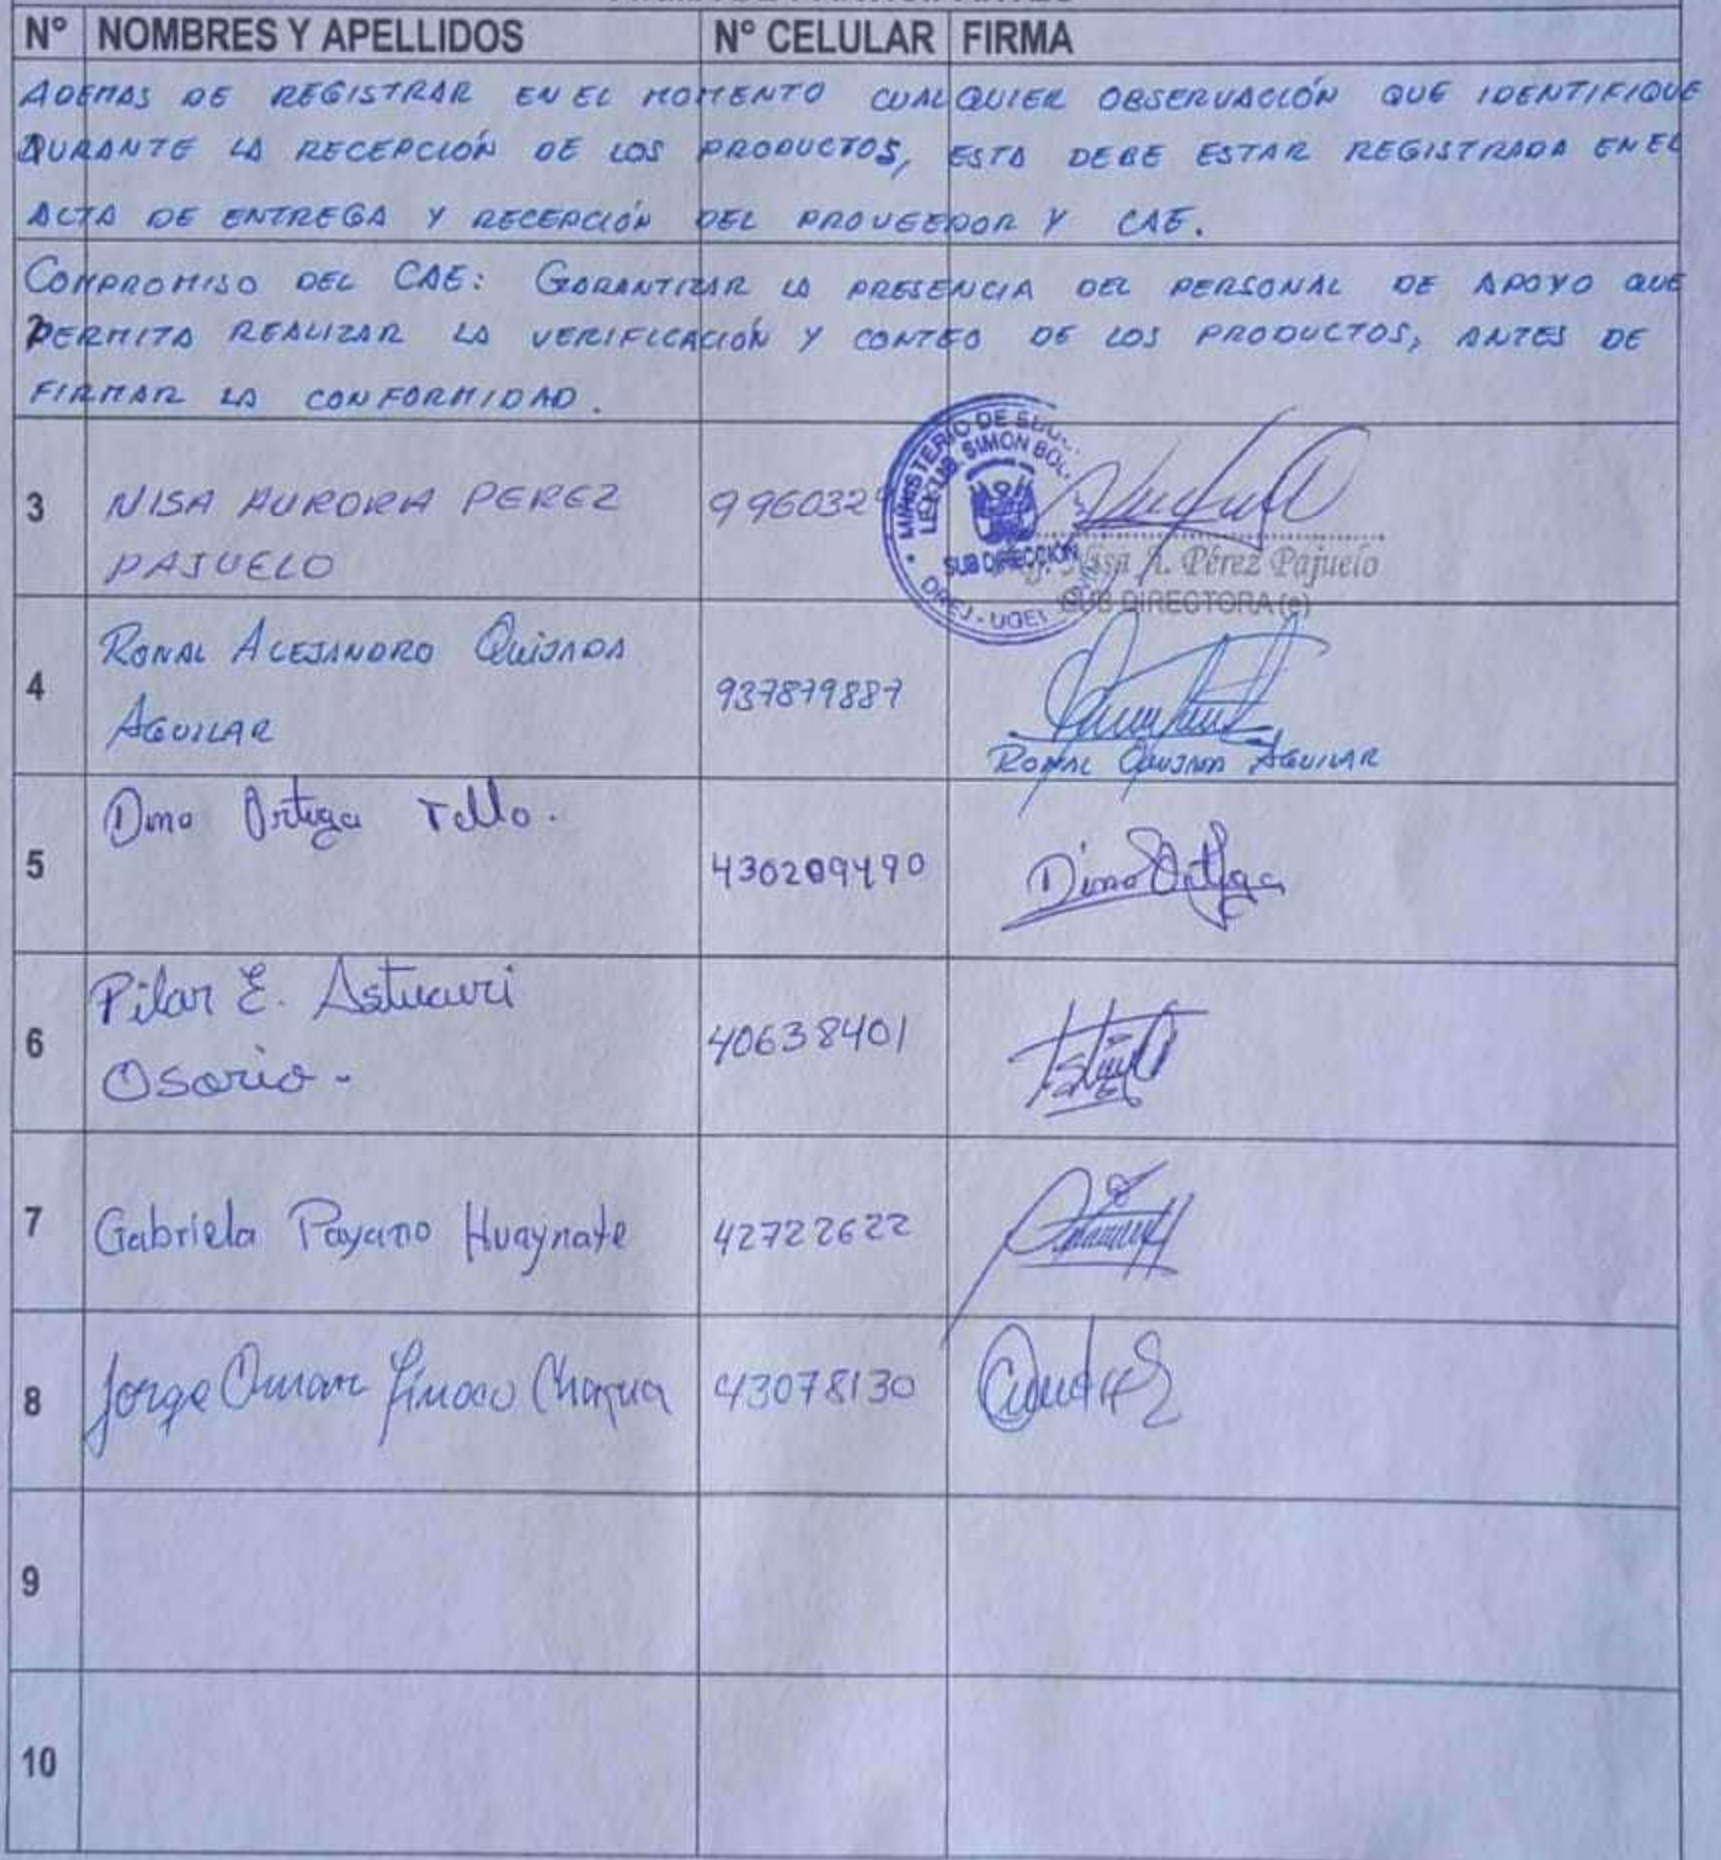 N° NOMBRES Y APELLIDOS N° CELULAR FIRMA
ADEMAS DE REGISTRAR EN EL MOMENTO CUALQUIER OBSERVACIÓN QUE IDENTIFIQUE
DURANTE LA RECEPCIÓN DE LOS PRODUCTOS, ESTA DEBE ESTAR REGISTRADA EN EL
ACTA DE ENTREGA Y RECEPCIÓN DEL PROVEEDOR Y CAE.
COMPROMISO DEL CAE: GARANTIZAR LA PRESENCIA DEL PERSONAL DE APOYO QUE
2
PERMITA REALIZAR LA VERIFICACIÓN Y CONTEO DE LOS PRODUCTOS, ANTES DE
FIRMAR LA CONFORMIDAD.
3 NISA AURORA PEREZ 996032
PAJUELO
MINISTERIO DE
SIMON
SUB DIRECCION
DREJ - UGEL
Nisa A. Pérez Pajuelo
SUB DIRECTORA (e)
4 RONAL ALEJANDRO QUIJADA 937879887
AGUILAR
RONAL QUIJADA AGUILAR
5 Dino Ortega Tello. 430209490
Dino Ortega
6 Pilar E. Astucuri 40638401
Osorio -
7 Gabriela Payano Huaynate 42722622
8 Jorge Omar Tinoco 43078130
9
10